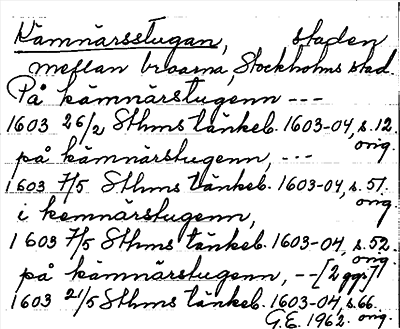 Kämnärsstugan, staden
mellan broarna, Stockholms stad.
På kämnärstugenn ---
1603 26/2 Sthms tänkeb. 1603-04, s. 12.
orig.
på kämnärstugenn, ---
1603 7/5 Sthms tänkeb. 1603-04, s. 51.
orig
i kemnärstugenn,
1603 7/5 Sthms tänkeb. 1603-04, s. 52.
orig.
på kämnärstugenn, --- [2 ggr]
1603 21/5 Sthms tänkeb. 1603-04, s. 66.
G.E. 1962. orig.